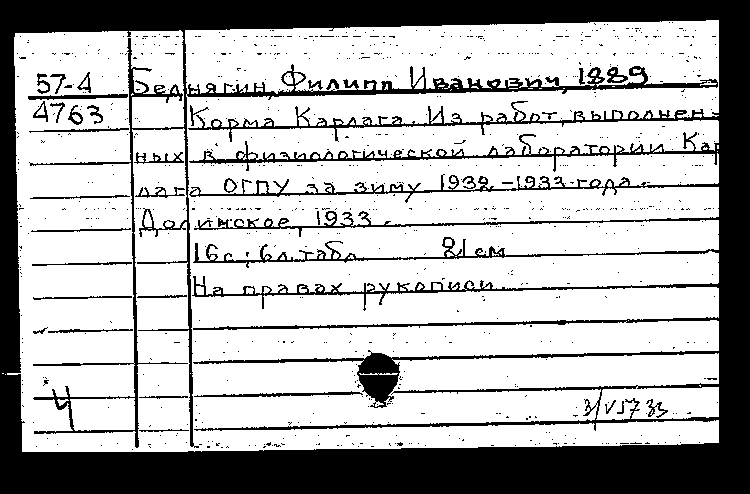 57-4 Беднягин, Филипп Иванович, 1889
4763 Корма Карлага. Из работ, выполнен-
ных в физиологической лаборатории Кар
лага ОГПУ за зиму 1932-1933 года.
Долинское, 1933.
16 с; 6 л. табл. 21 см
На правах рукописи.
Ч
3/V 57 зз